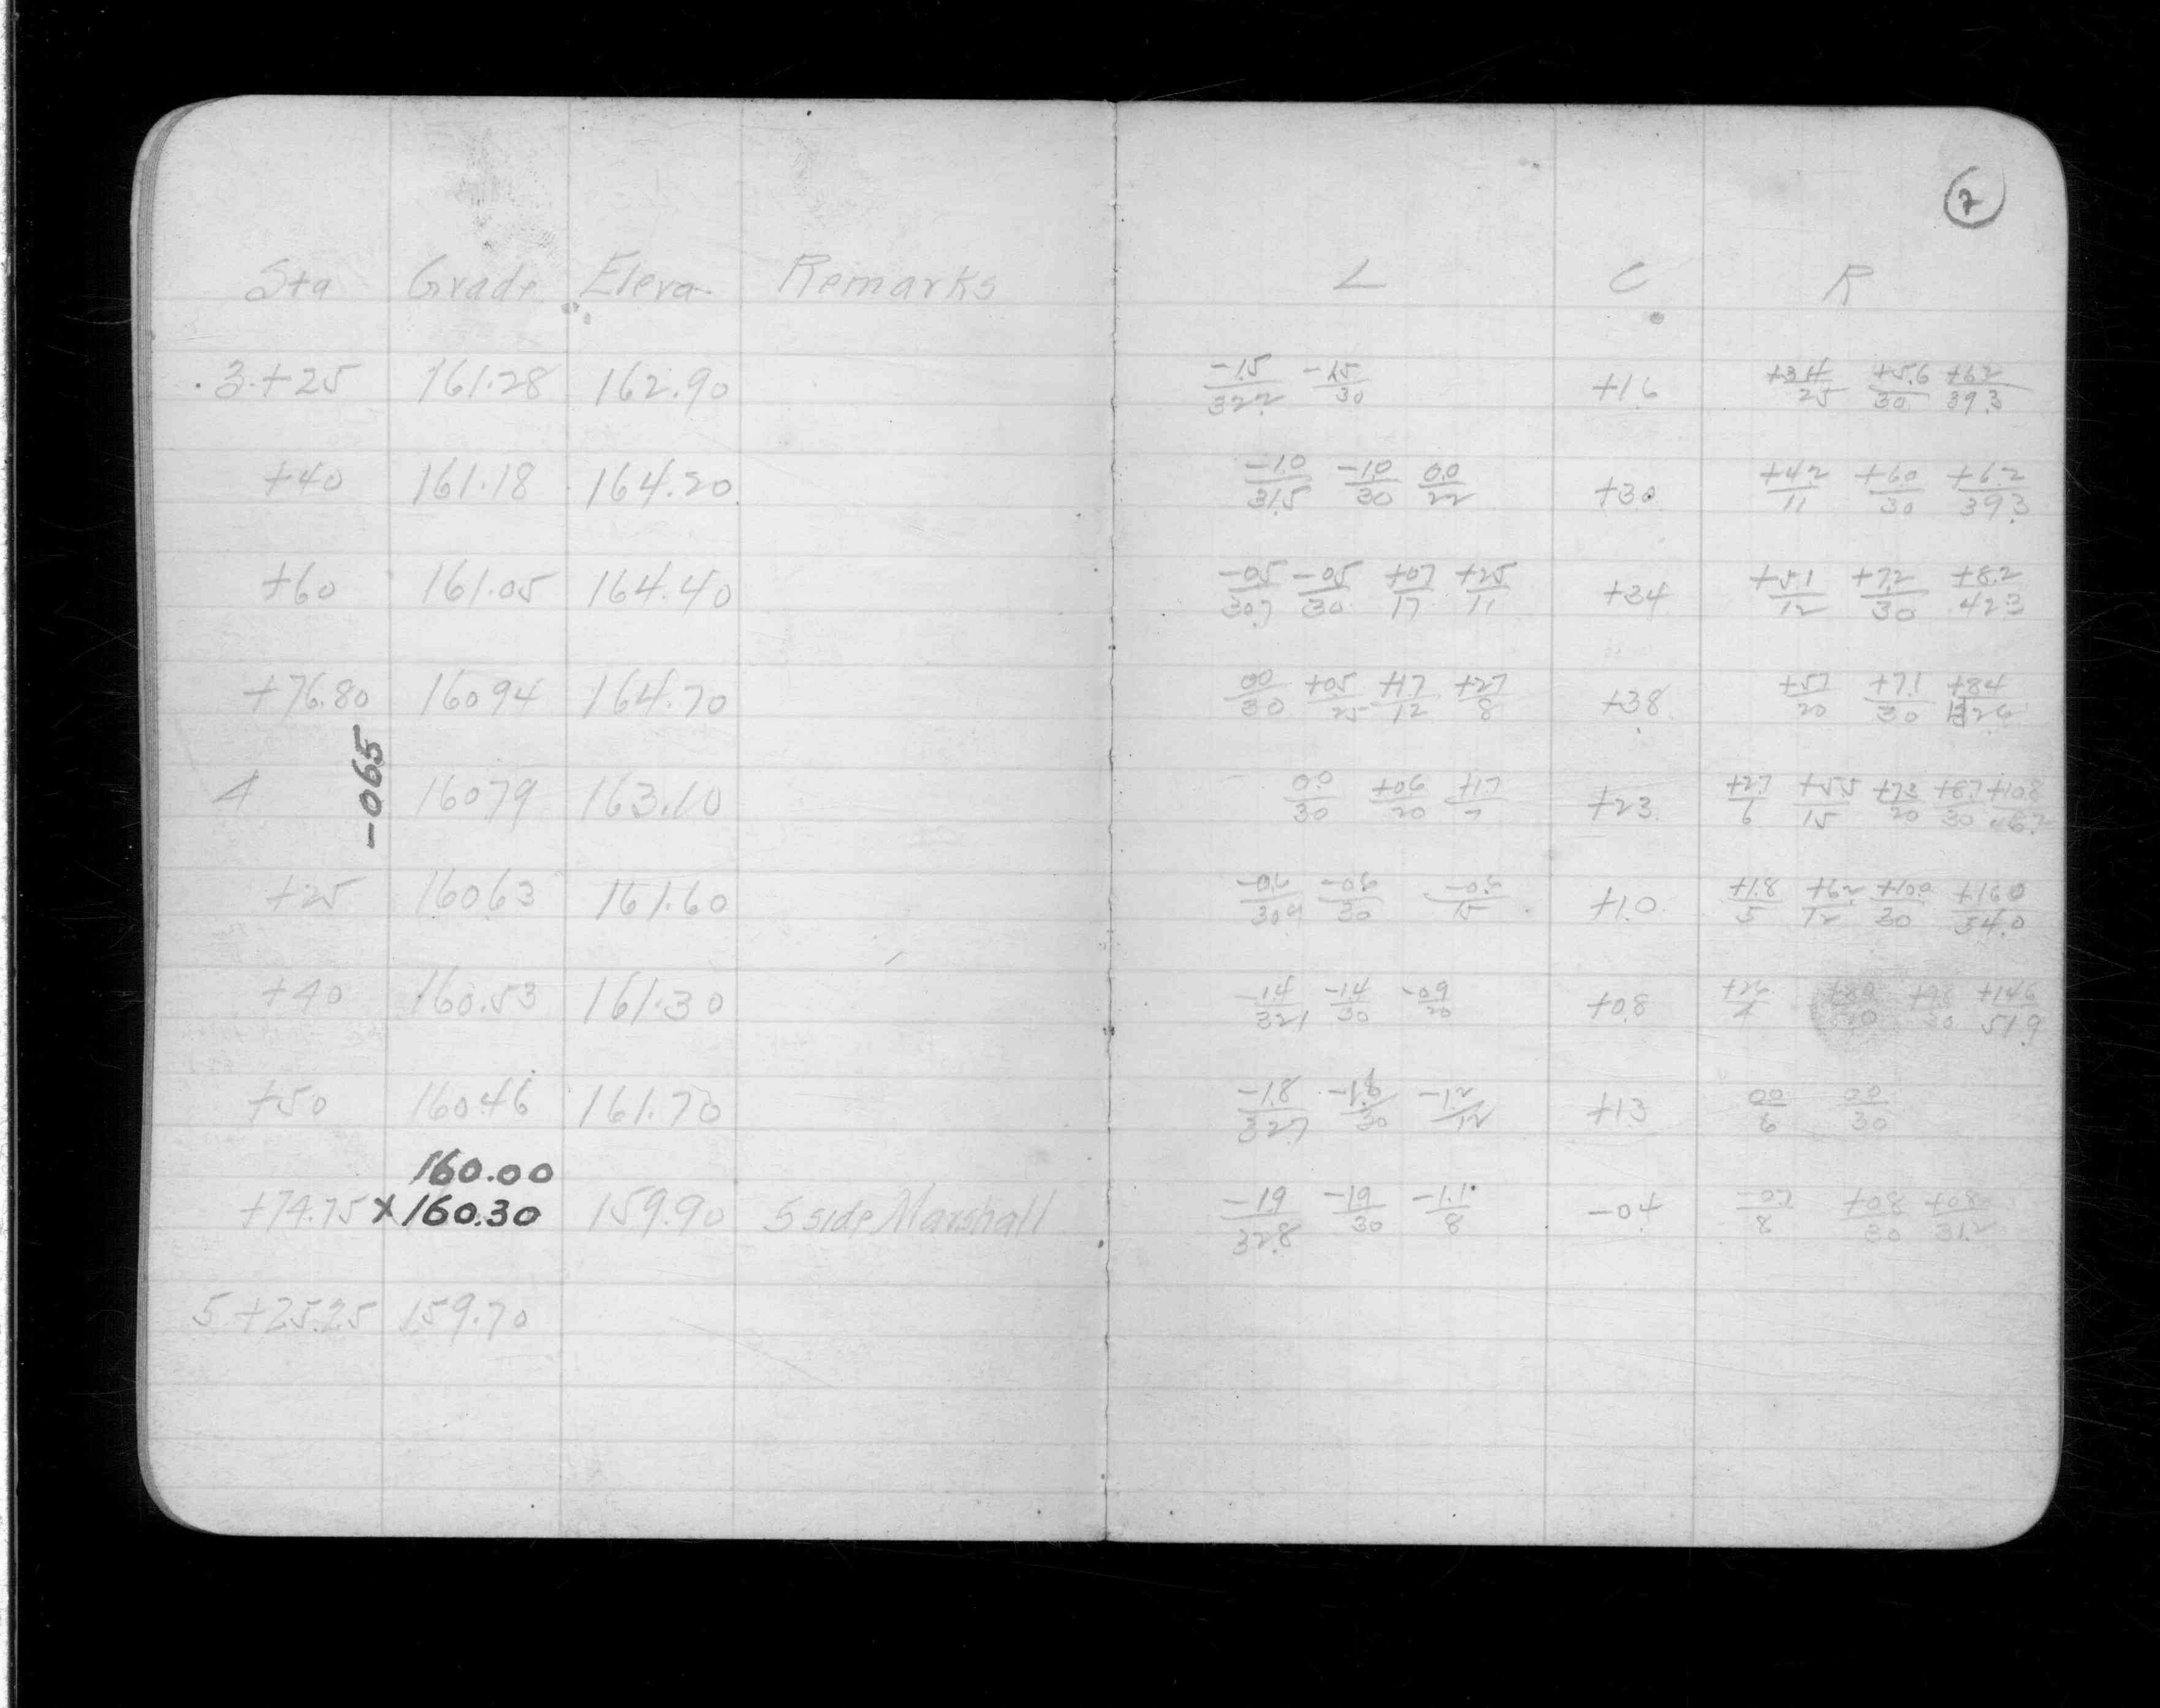 7
Sta Grade Eleva Remarks L C R
3+25 161.28 162.90 -1.5/32.2 -1.5/30 +1.6 +3.4/25 +5.6/30 +6.2/39.3
+40 161.18 164.20 -1.0/31.5 -1.0/30 0.0/22 +3.0 +4.2/11 +6.0/30 +6.2/39.3
+60 161.05 164.40 -0.5/30.7 -0.5/30 +0.7/17 +2.5/11 +3.4 +5.1/12 +7.2/30 +8.2/42.3
+76.80 160.94 164.70 0.0/30 +0.5/25 +1.7/12 +2.7/8 +3.8 +5.7/20 +7.1/30 +8.4
-0.65
4 160.79 163.10 0.0/30 +0.6/20 +1.7/7 +2.3 +2.7/6 +5.5/15 +7.3/20 +8.7/30 +10.8/46.2
+25 160.63 161.60 -0.6/30.9 -0.6/30 -0.6/15 +1.0 +1.8/5 +6.2/12 +10.0/30 +16.0/54.0
+40 160.53 161.30 -1.4/32.1 -1.4/30 -0.9/20 +0.8 +2.6/4 +8.0/20 +9.8/30 +14.6/51.9
+50 160.46 161.70 -1.8/32.7 -1.8/30 -1.2/12 +1.3 0.0/6 0.0/30
160.00
+74.75 x 160.30 159.90 S side Marshall -1.9/32.8 -1.9/30 -1.1/8 -0.4 -0.7/8 +0.8/30 +0.8/31.2
5+25.25 159.70